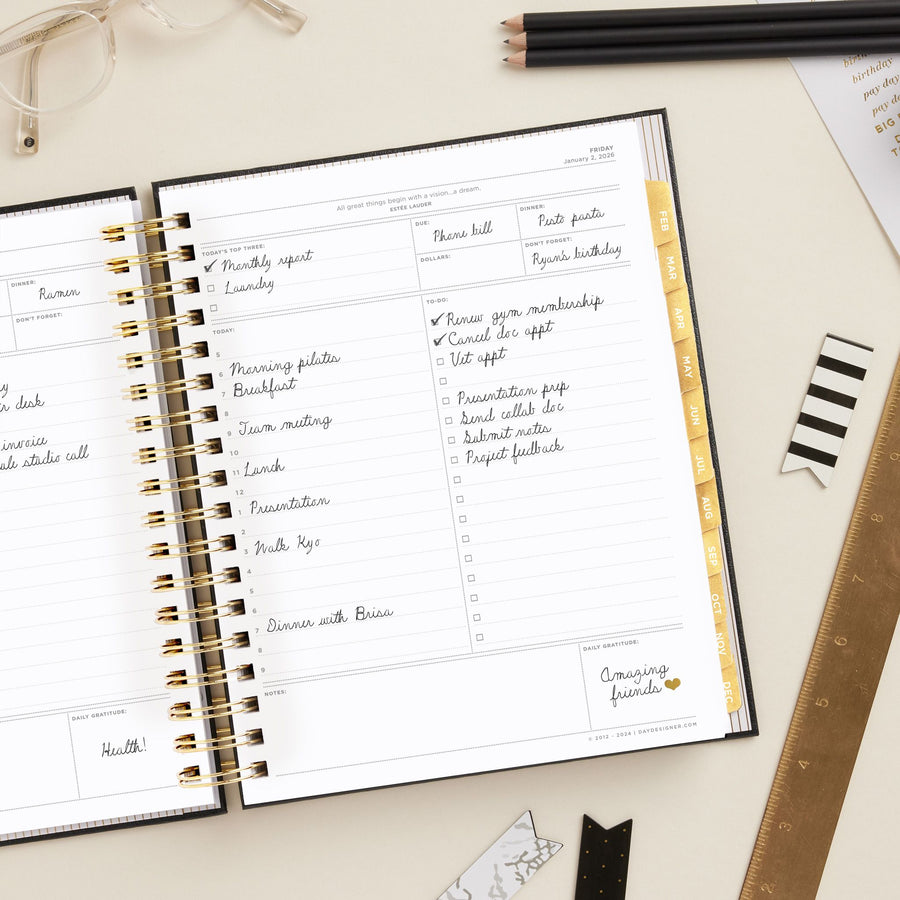 DINNER:
Ramen
DON'T FORGET:
desk
invoice
studio call
DAILY GRATITUDE:
Health!
FRIDAY
January 2, 2026
All great things begin with a vision...a dream.
ESTÉE LAUDER
TODAY'S TOP THREE:
Monthly report
Laundry
DUE:
Phone bill
DOLLARS:
DINNER:
Pesto pasta
DON'T FORGET:
Ryan's birthday
TODAY:
5
6 Morning pilates
7 Breakfast
8
9 Team meeting
10
11 Lunch
12
1 Presentation
2
3 Walk Kyo
4
5
6
7 Dinner with Brisa
8
9
TO-DO:
Renew gym membership
Cancel doc appt
Vet appt
Presentation prep
Send collab doc
Submit notes
Project feedback
NOTES:
DAILY GRATITUDE:
Amazing
friends
© 2012 - 2024 | DAYDESIGNER.COM
FEB
MAR
APR
MAY
JUN
JUL
AUG
SEP
OCT
NOV
DEC
birthday
birthday
pay day
pay day
BIG
9
8
7
6
5
4
3
2